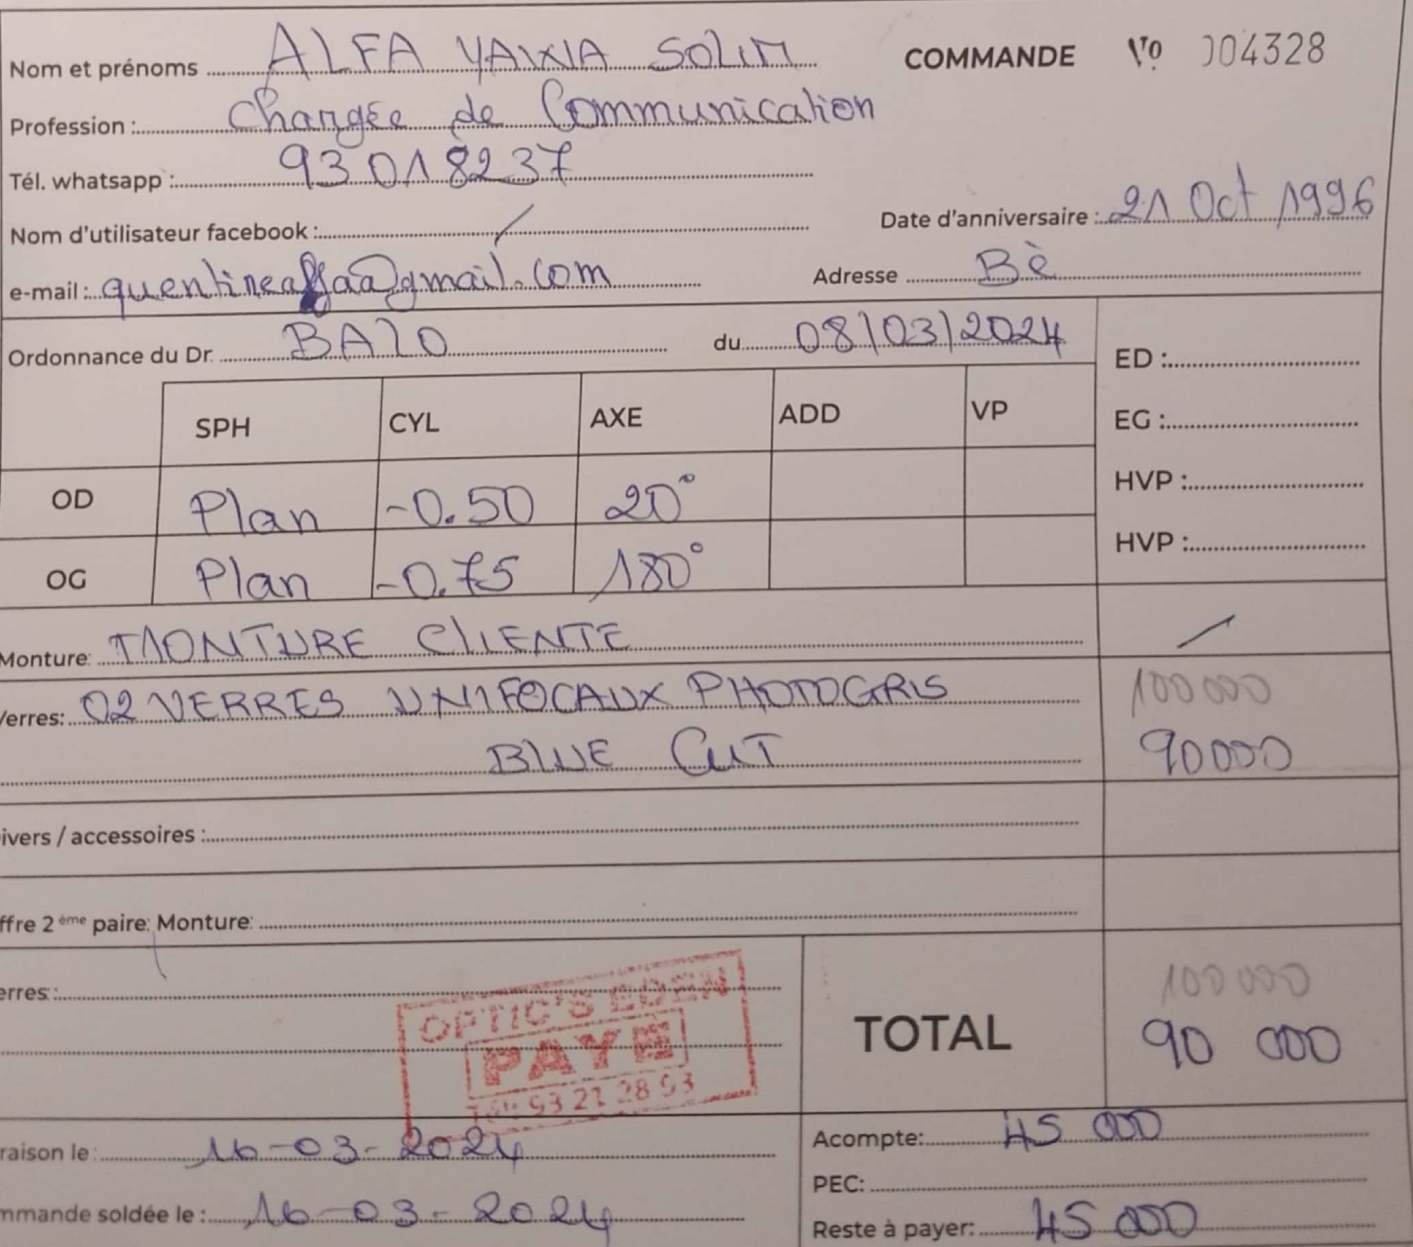 Nom et prénoms ALFA YAWIA SOLIM COMMANDE N° 004328
Profession : Chargée de Communication
Tél. whatsapp : 93018237
Nom d'utilisateur facebook : / Date d'anniversaire : 21 Oct 1996
e-mail : quentineaffaa@gmail.com Adresse Bè
Ordonnance du Dr. BAlO du 08/03/2024 ED :
SPH CYL AXE ADD VP EG :
OD Plan -0.50 20° HVP :
OG Plan -0.75 180° HVP :
Monture: MONTURE CLIENTE /
Verres: 02 VERRES UNIFOCAUX PHOTOGRIS 100 000
BLUE CUT 90000
ivers / accessoires :
ffre 2 ème paire: Monture:
erres :
OPTIC'S EDEN
PAYE
Tél: 93 21 28 93
TOTAL 100 000
90 000
raison le : 16-03-2024 Acompte: 45 000
PEC:
mmande soldée le : 16-03-2024 Reste à payer: 45 000